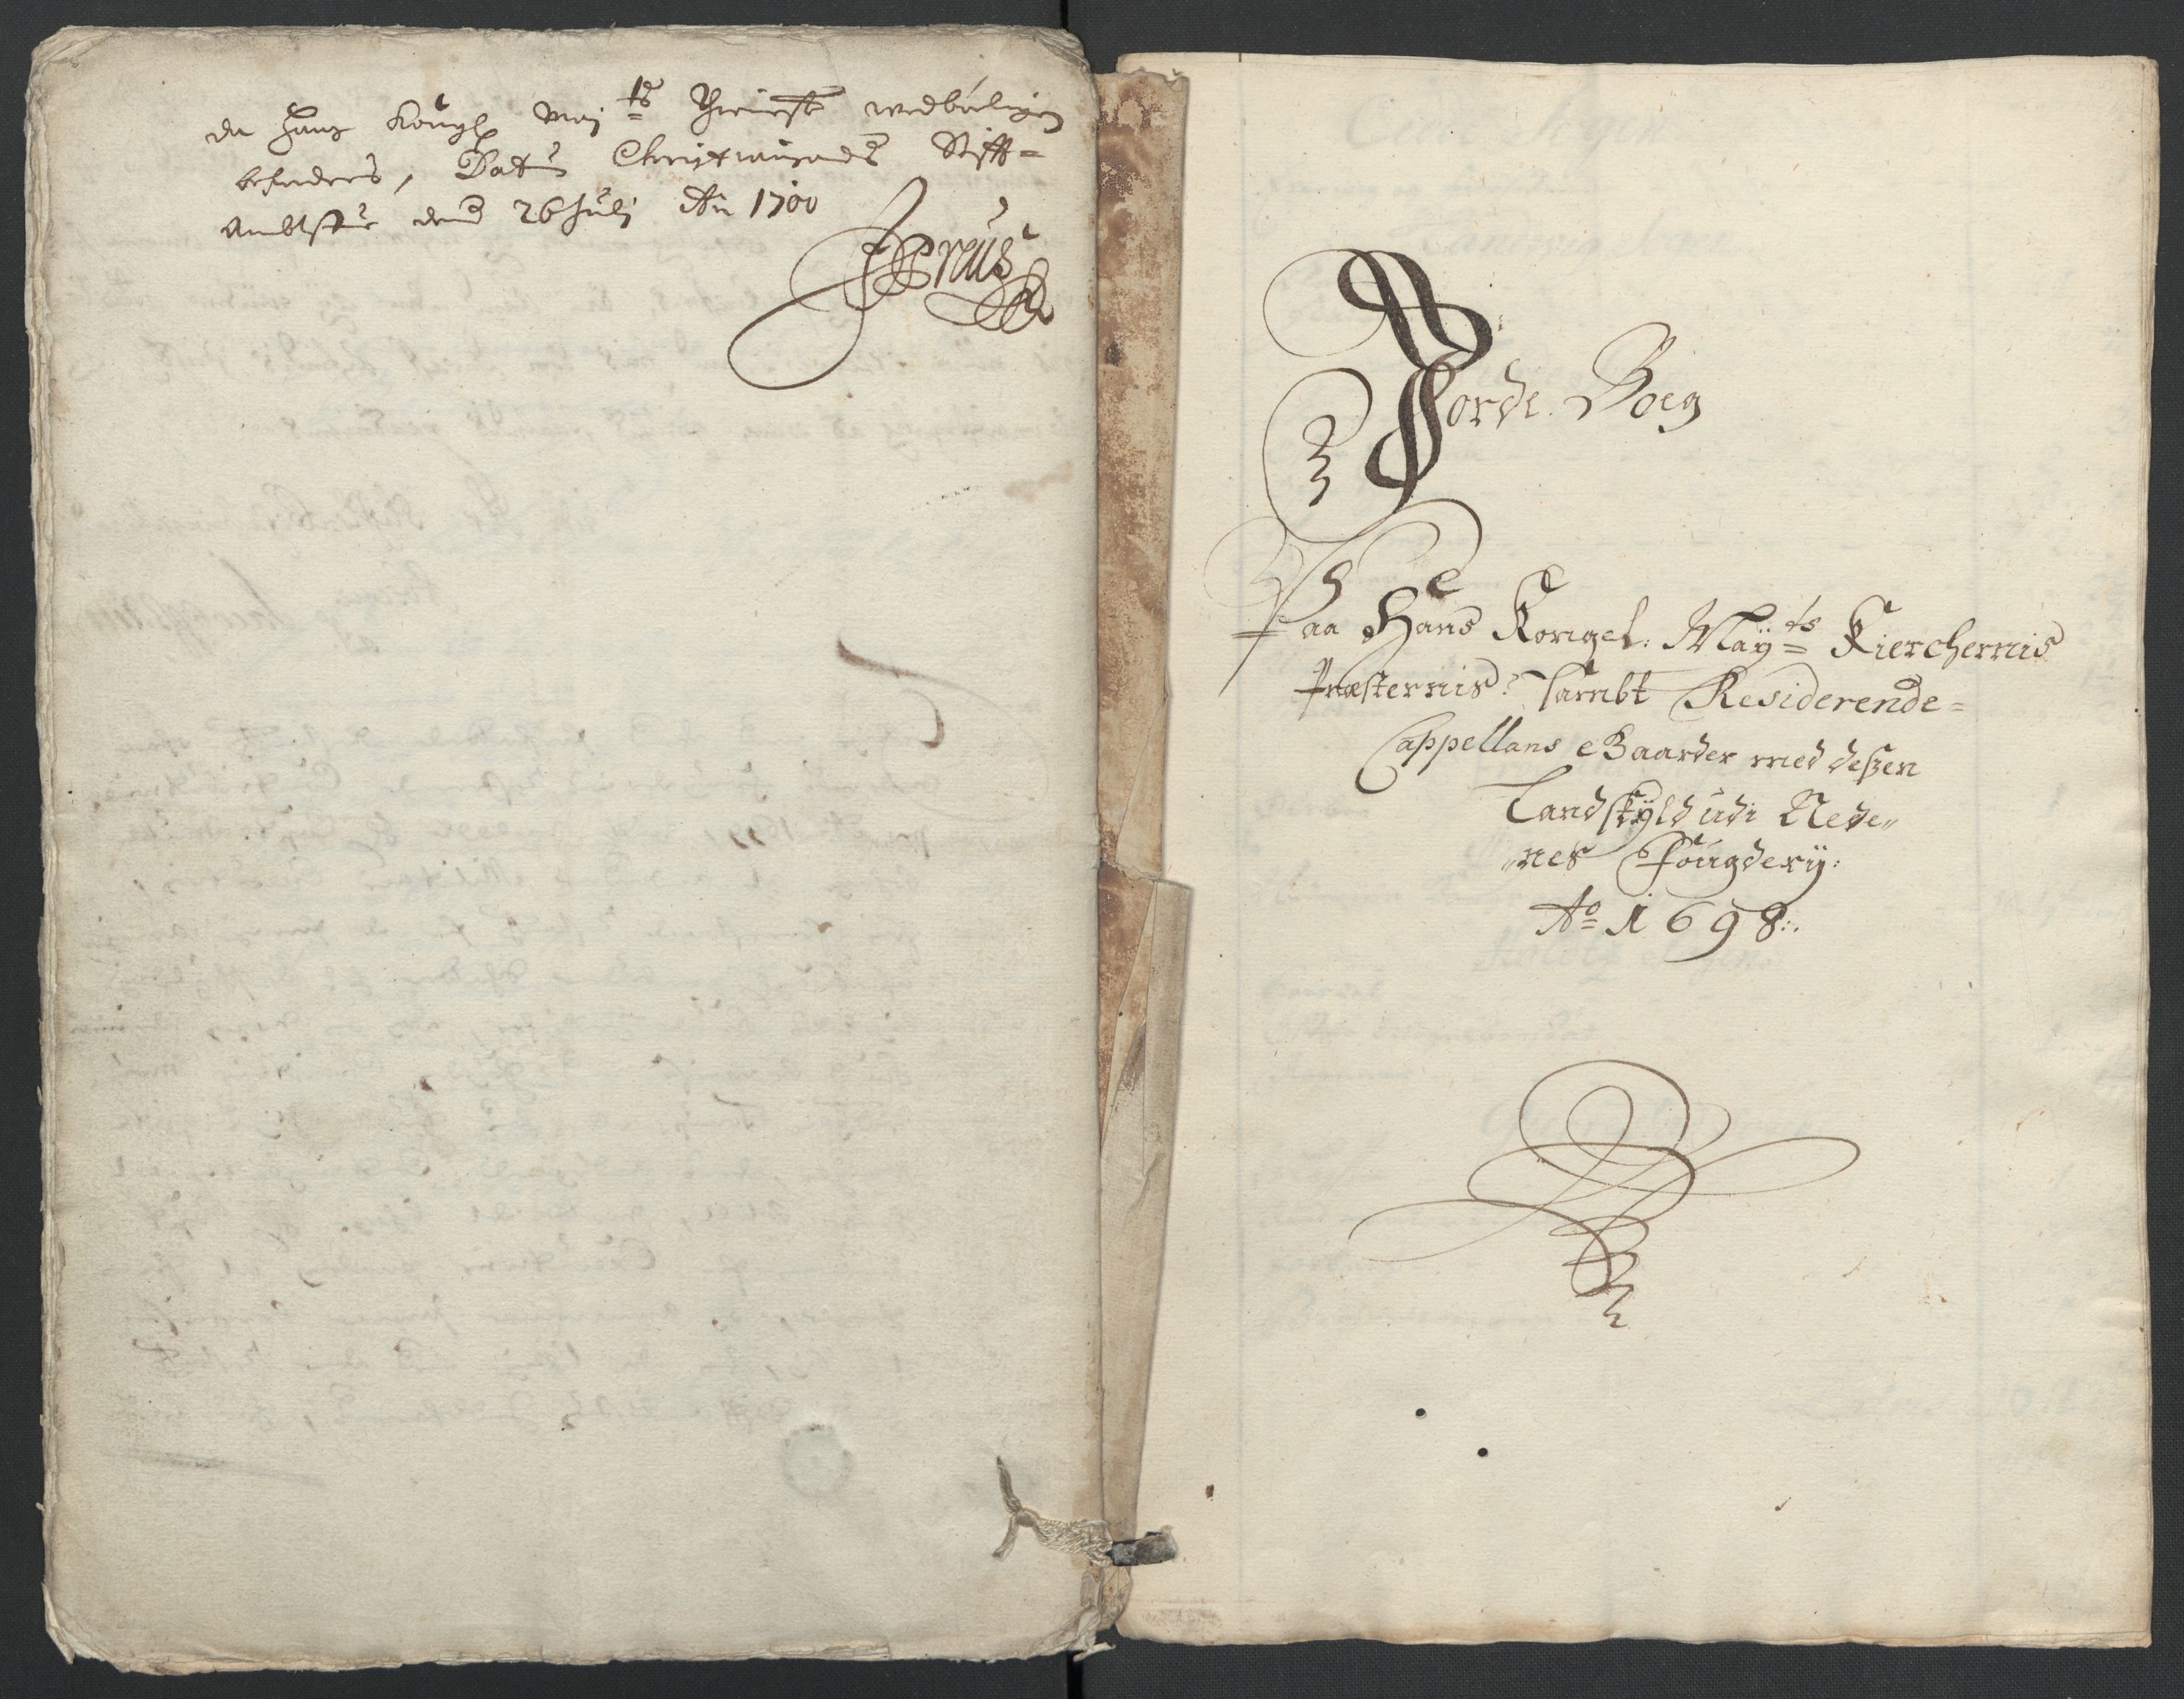 der Hans Kongl Maj ts Thienest wedbørligen
befordres, Datum Christiansands Stifft=
Ambtstue dend 26 Julj An 1700
Jorde Boeg
Paa Hans Kongel: Maÿ ts Kierchernis
Præsternis: sambt Residerende=
Cappellans Gaarder med deszen
Landskÿld udi Nede„
„nes Fougderÿ:
Ao 1698:.